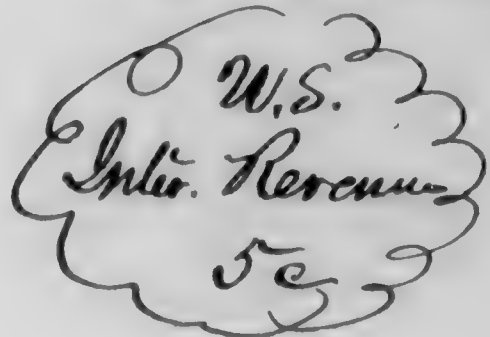 U.S.
Inter. Revenue
5c